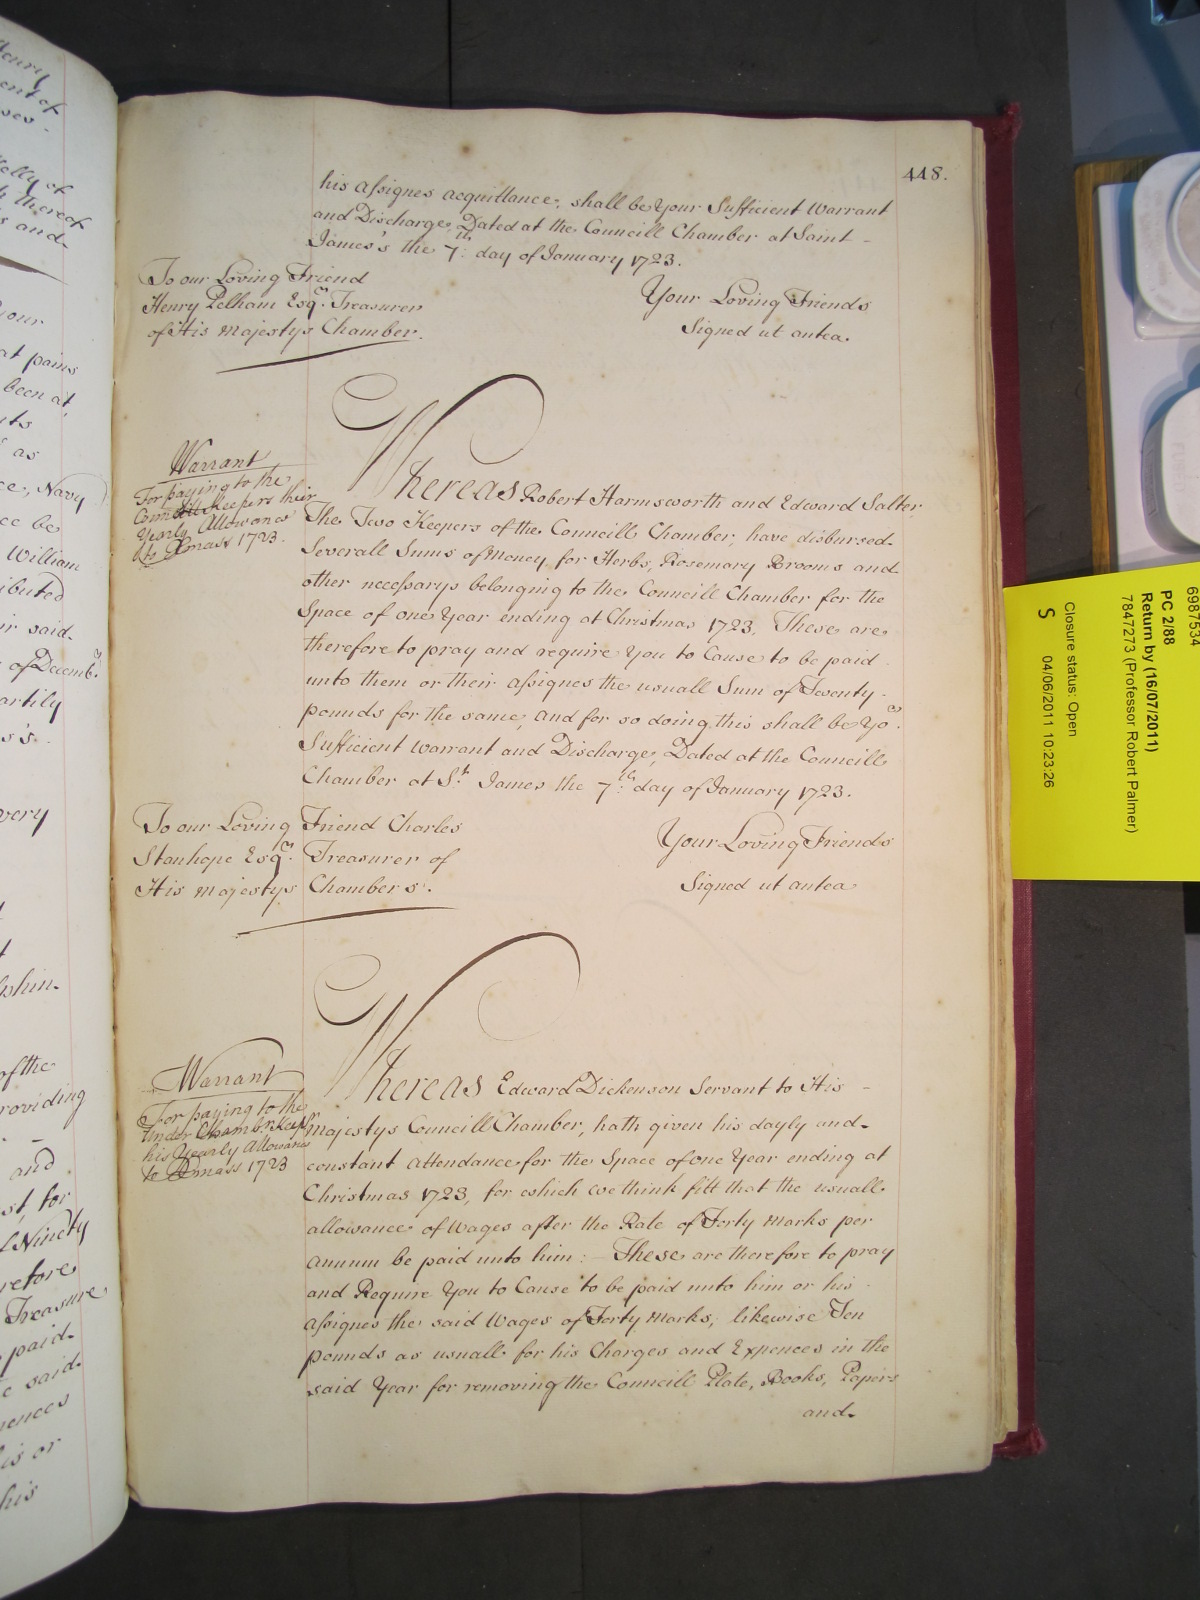 448.
his assignes acquittance, shall be Your Sufficient Warrant
and Discharge, Dated at the Councill Chamber at Saint -
James's the 7th: day of January 1723.
To our Loving Friend
Henry Pelham Esqr. Treasurer
of His Majestys Chamber.
Your Loving Friends
Signed ut antea.
Warrant
For paying to the
Councill Keepers their
Yearly Allowance
to Xmass 1723.
Whereas Robert Harmsworth and Edward Salter
The Two Keepers of the Councill Chamber, have disbursed
Severall Sums of Money, for Herbs, Rosemary Brooms and
other necessarys belonging to the Councill Chamber for the
Space of one Year ending at Christmas 1723, These are
therefore to pray and require You to Cause to be paid
unto them or their assignes the usuall Sum of Twenty -
pounds for the same, and for so doing, this shall be Yor.
Sufficient Warrant and Discharge, Dated at the Councill
Chamber at St. James the 7th: day of January 1723.
To our Loving Friend Charles
Stanhope Esqr. Treasurer of
His Majestys Chambers.
Your Loving Friends
Signed ut antea
Warrant
For paying to the
under Chambr. Keepr
his Yearly Allowance
to Xmass 1723
Whereas Edward Dickenson Servant to His -
Majestys Councill Chamber, hath given his dayly and
constant attendance for the Space of one Year ending at
Christmas 1723, for which we think fitt that the usuall
allowance of Wages after the Rate of Forty Marks per
annum be paid unto him: - These are therefore to pray
and Require You to Cause to be paid unto him or his
assignes the said Wages of Forty Marks, likewise Ten
pounds as usuall for his Charges and Expences in the
said Year for removing the Councill Plate, Books, Papers
and
6987534
PC 2/88
Return by (16/07/2011)
7847273 (Professor Robert Palmer)
Closure status: Open
S 04/06/2011 10:23:26